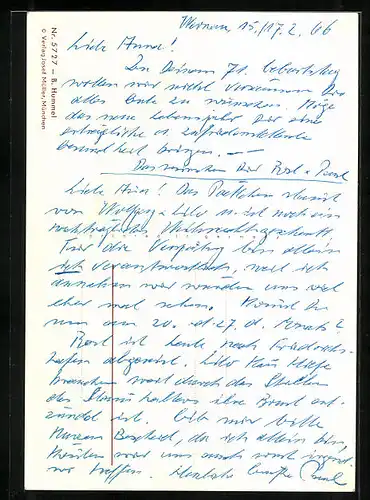 15./17.2.66
Liebe Anna!
Zu Deinem 71. Geburtstag
wollen wir nicht versäumen Dir
alles Gute zu wünschen. Möge
das neue Lebensjahr Dir eine
erträgliche u. zufriedenstellende
Gesundheit bringen. —
Das wünschen Dir u. Paul
Liebe Das Päckchen
von Wolfgang u. Lilo u. ist noch ein
nachträgliches Weihnachtsgeschenk
Für die Verspätung bin allein
ich verantwortlich, weil ich
wir würden uns viel
eher mal sehen. Kommst Du
nun am 20. od. 27. d. Monats?
ist heute nach Friedrichs-
hafen abgereist. Lilo
weil durch das Stillen
des ihre Brust ent-
zündet ist. Gib mir bitte
kurzen Bescheid, da ich allein bin,
könnten wir uns auch sonst irgend-
wo treffen. Herzliche Paul
Nr. 5727 – B. Hummel
© Verlag Josef Müller, München